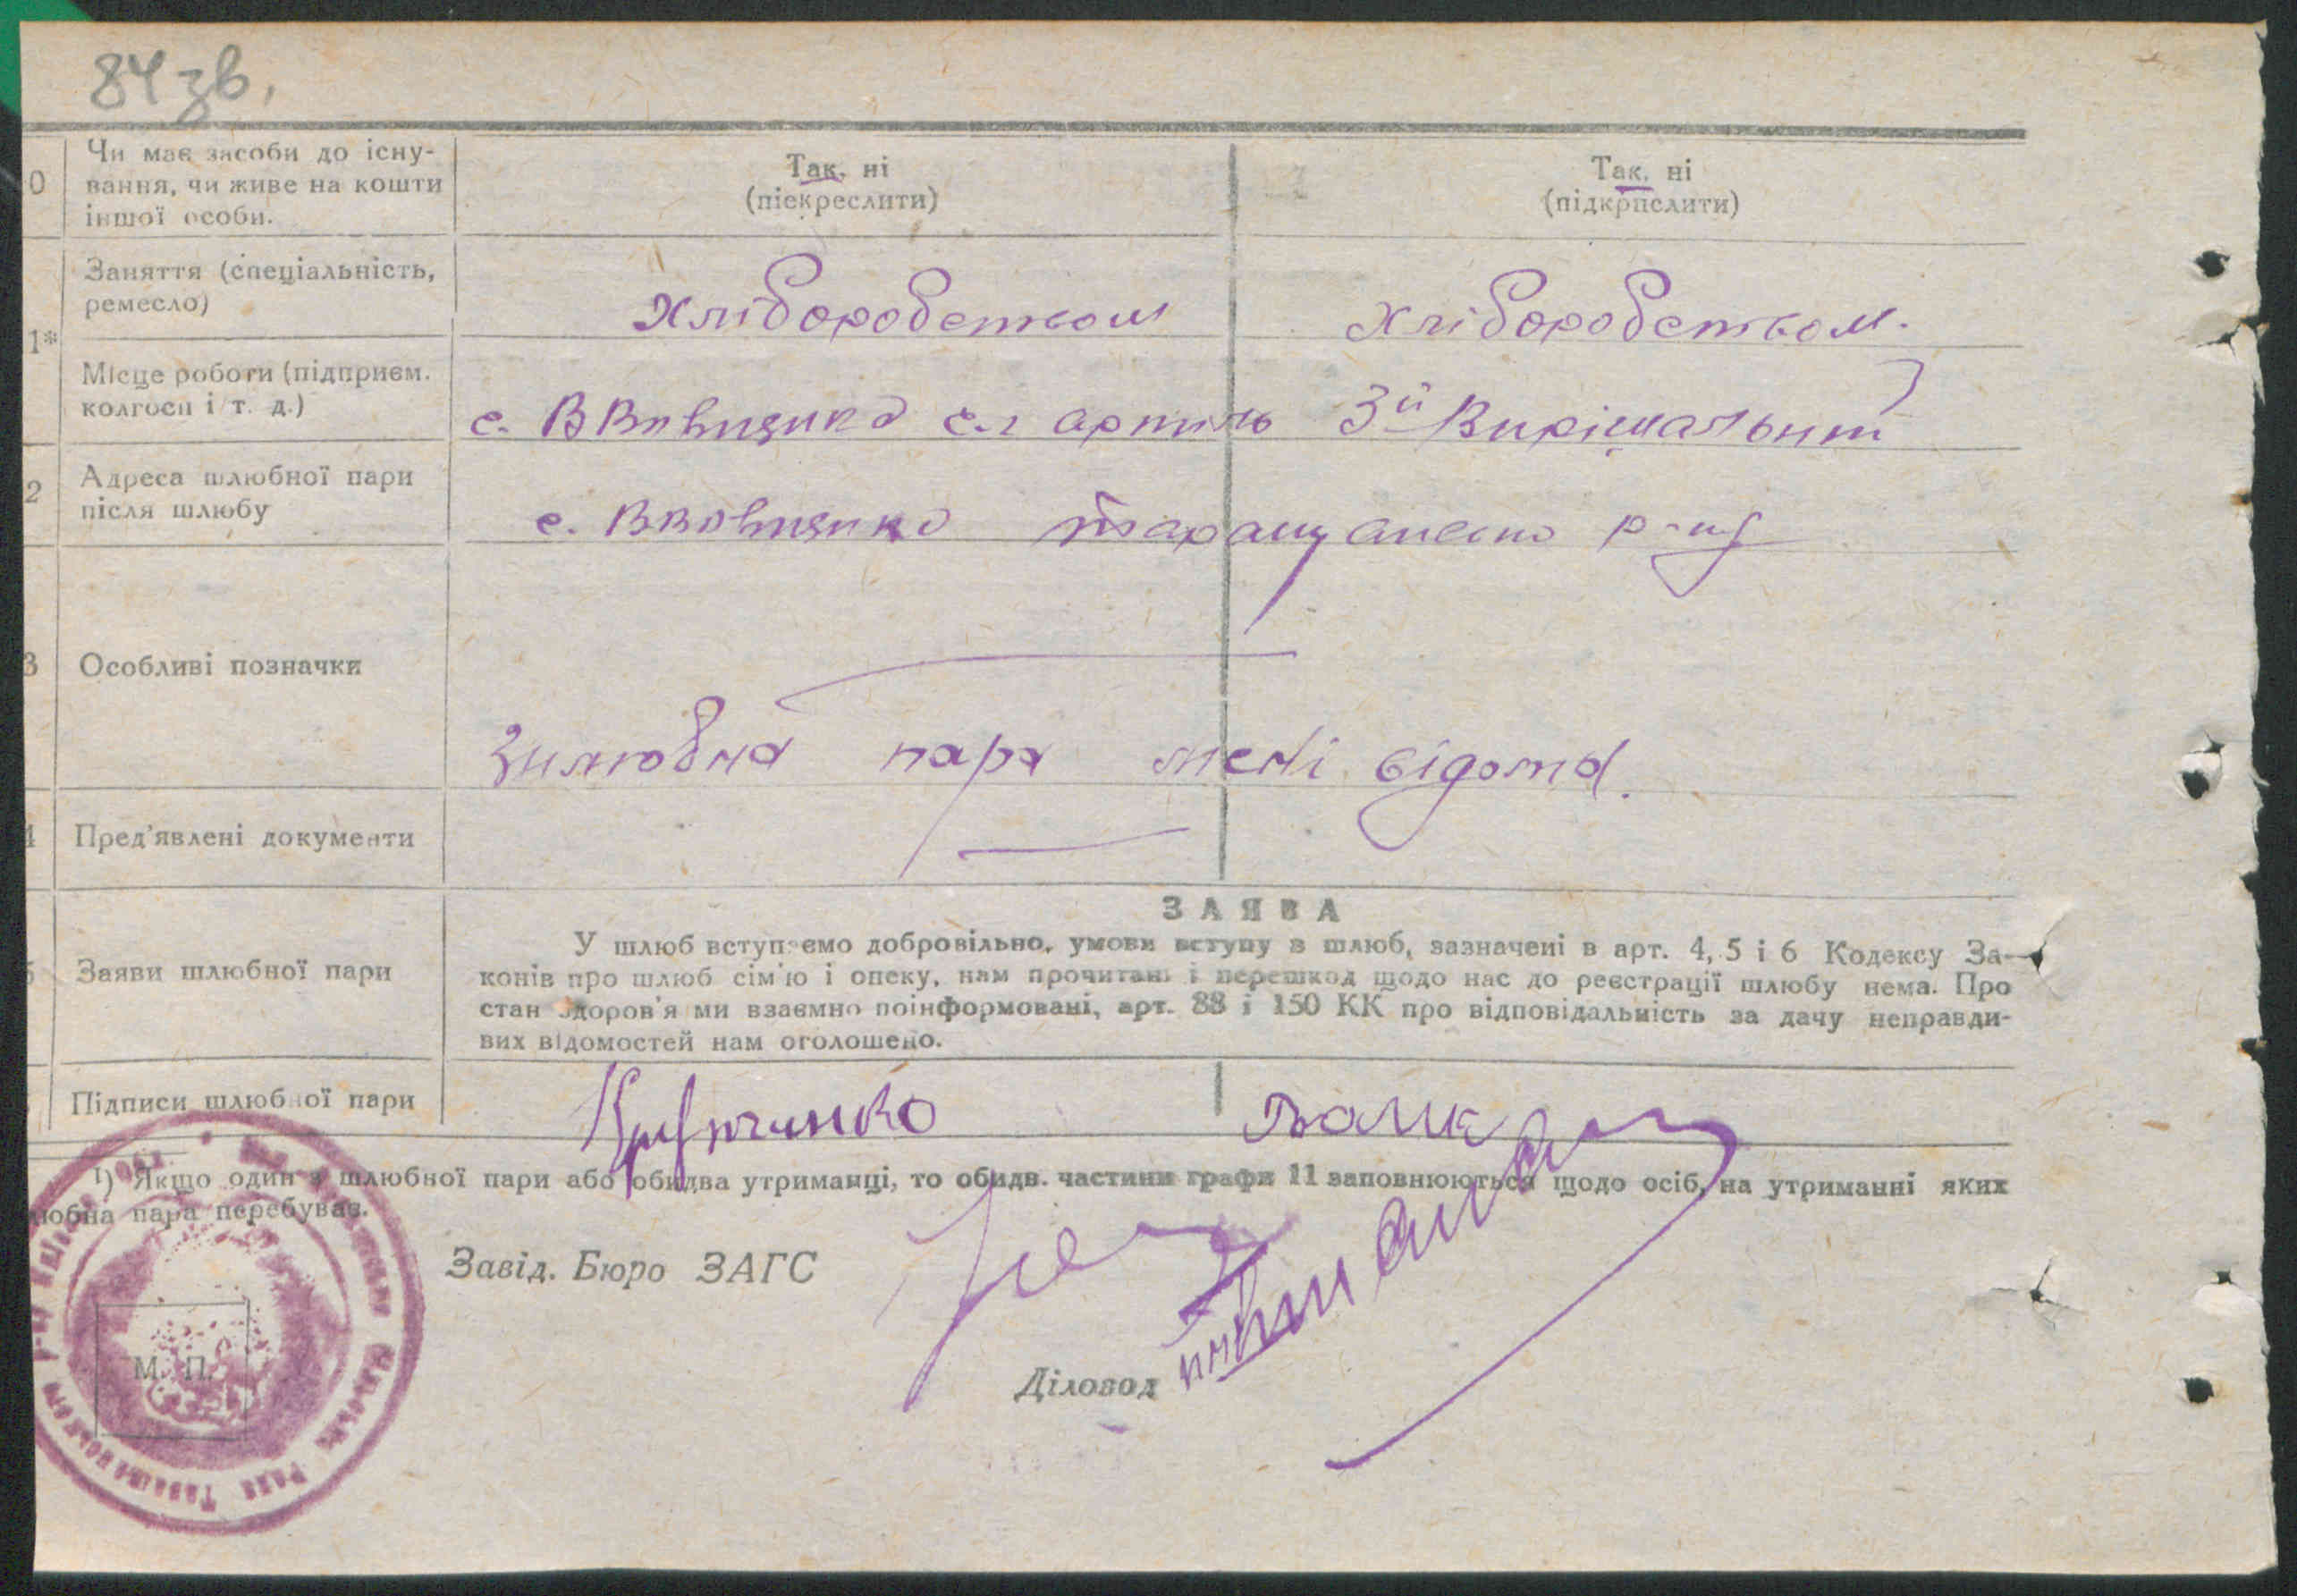 84 зв.
0 Чи має засоби до існу-
вання, чи живе на кошти
іншої особи.
Так, ні
(піекреслити)
Так, ні
(підкрпслити)
1* Заняття (спеціальність,
ремесло)
Хліборобством
Хліборобством.
Місце роботи (підприєм.
колгосп і т. д.)
с. ВВовнянка с.г артиль 3й Вирішальний
2 Адреса шлюбної пари
після шлюбу
с. ВВовнянка Таращанського р-ну
3 Особливі позначки
Зшлюбна пара мені відома.
4 Пред'явлені документи
5 Заяви шлюбної пари
ЗАЯВА
У шлюб вступаємо добровільно, умови вступу в шлюб, зазначені в арт. 4, 5 і 6 Кодексу За-
конів про шлюб сім'ю і опеку, нам прочитані і перешкод щодо нас до реєстрації шлюбу нема. Про
стан здоров'я ми взаємно поінформовані, арт. 88 і 150 КК про відповідальність за дачу неправди-
вих відомостей нам оголошено.
Підписи шлюбної пари
¹) Якщо один з шлюбної пари або обидва утриманці, то обидв. частини графи 11 заповнюються щодо осіб, на утриманні яких
любна пара перебуває.
Завід. Бюро ЗАГС
Діловод
М. П.